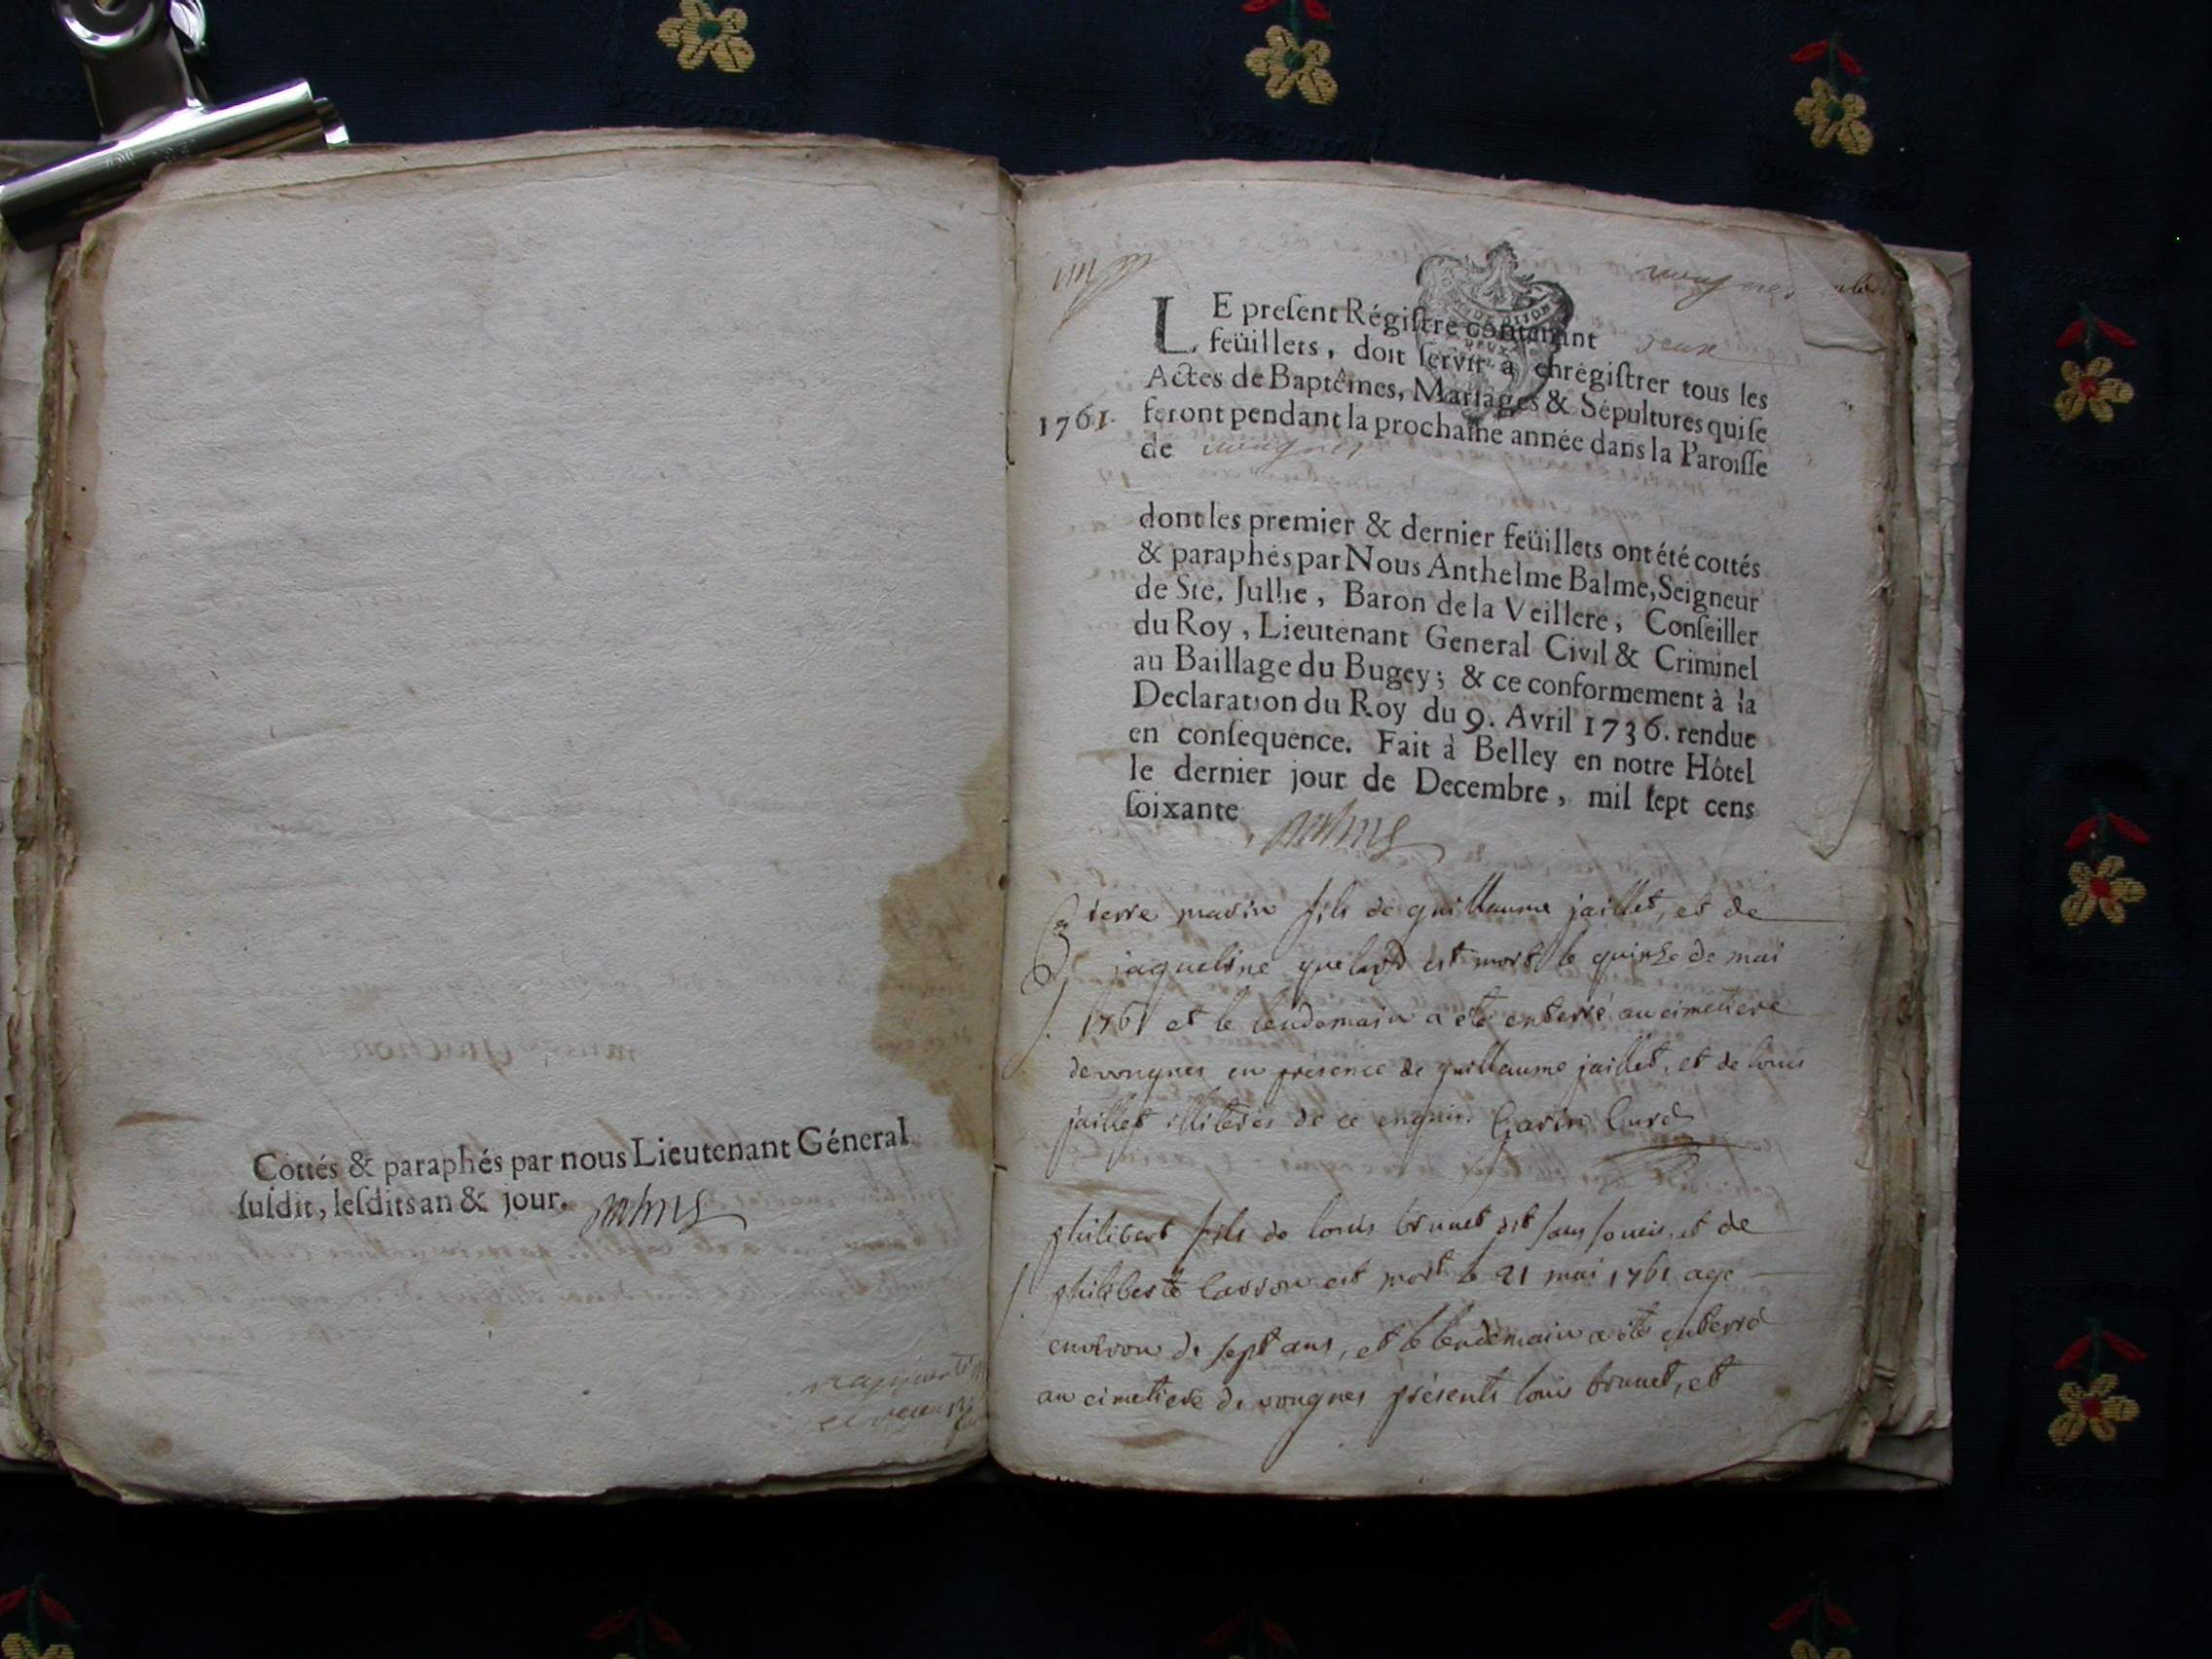 Cottés & paraphés par nous Lieutenant Géneral
ſuſdit, leſdits an & jour.
LE preſent Régiſtre contenant deux
feüillets, doit ſervir à enregiſtrer tous les
Actes de Baptêmes, Mariages & Sépultures qui ſe
1761. feront pendant la prochaine année dans la Paroiſſe
de vongnes
dont les premier & dernier feüillets ont été cottés
& paraphés par Nous Anthelme Balme, Seigneur
de Ste. Jullie, Baron de la Veillere, Conſeiller
du Roy, Lieutenant General Civil & Criminel
au Baillage du Bugey; & ce conformement à la
Declaration du Roy du 9. Avril 1736. rendue
en conſequence. Fait à Belley en notre Hôtel
le dernier jour de Decembre, mil ſept cens
ſoixante
pierre marin fils de guillaume jaillet, et de
jaqueline est mort le quinze de mai
1761 et le lendemain a été enterré au cimetiere
de vongnes en presence de guillaume jaillet, et de louis
jaillet illiterés de ce enquis. Garin Curé
philibert fils de louis brunet dit sans soucis, et de
philiberte Carron est mort le 21 mai 1761 agé
environ de sept ans, et le lendemain a été enterré
au cimetiere de vongnes présents louis brunet, et